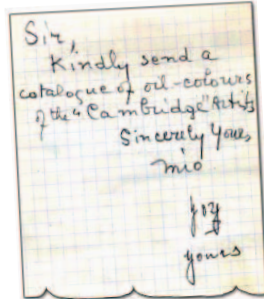 Sir,
Kindly send a
catalogue of oil-colours
of the "Cambridge" Artists
Sincerely Yours,
mio
joy
yours